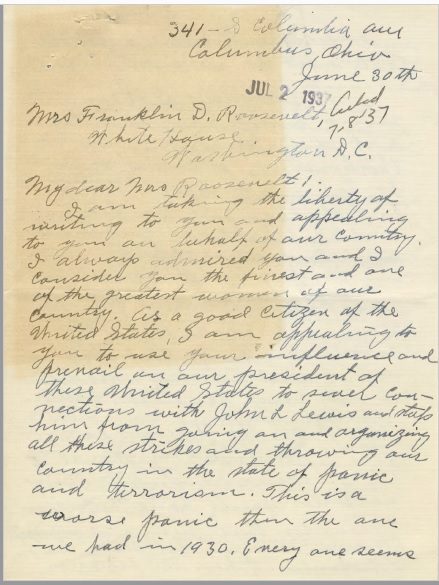 341 - S Columbia ave
Columbus, Ohio
June 30th
JUL 2 1937
7/8/37
Mrs Franklin D. Roosevelt,
White House
Washington D.C.
My dear Mrs Roosevelt:
I am taking the liberty of
writing to you and appealing
to you on behalf of our country.
I always admired you and I
consider you the finest and one
of the greatest women of our
Country. As a good citizen of the
United States, I am appealing to
you to use your influence and
prevail on our president of
these United States to sever con-
nections with John L Lewis and stop
him from going on and organizing
all these strikes and throwing our
country in the state of panic
and terrorism. This is a
worse panic then the one
we had in 1930. Every one seems